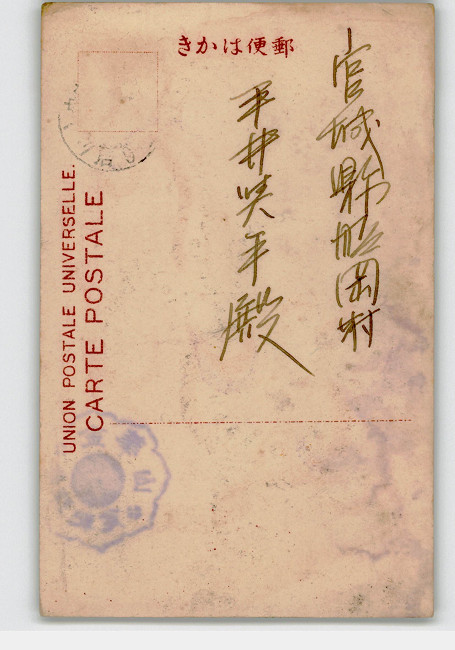 郵便はかき
宮城縣船岡村
平井英平殿
UNION POSTALE UNIVERSELLE.
CARTE POSTALE
山